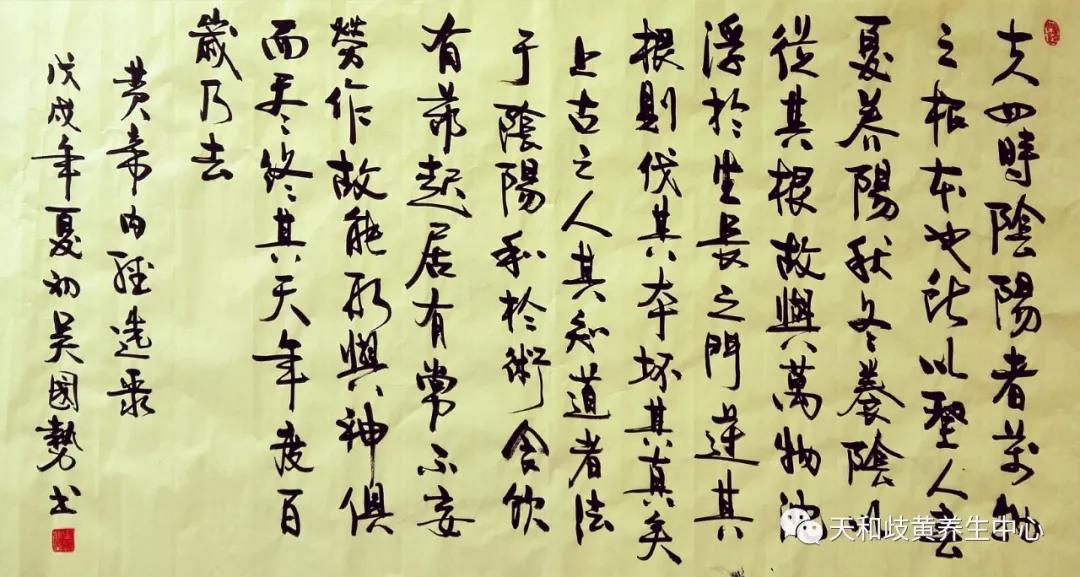 夫四時陰陽者萬物
之根本也所以聖人春
夏养陽秋冬養陰以
從其根故與萬物沉
浮於生長之門逆其
根則伐其本坏其真矣
上古之人其知道者法
于陰陽和於術食飲
有節起居有常不妄
勞作故能形與神俱
而尽終其天年度百
歲乃去
黄帝内經選录
戊戌年夏初吴國勢书
天和歧黄养生中心